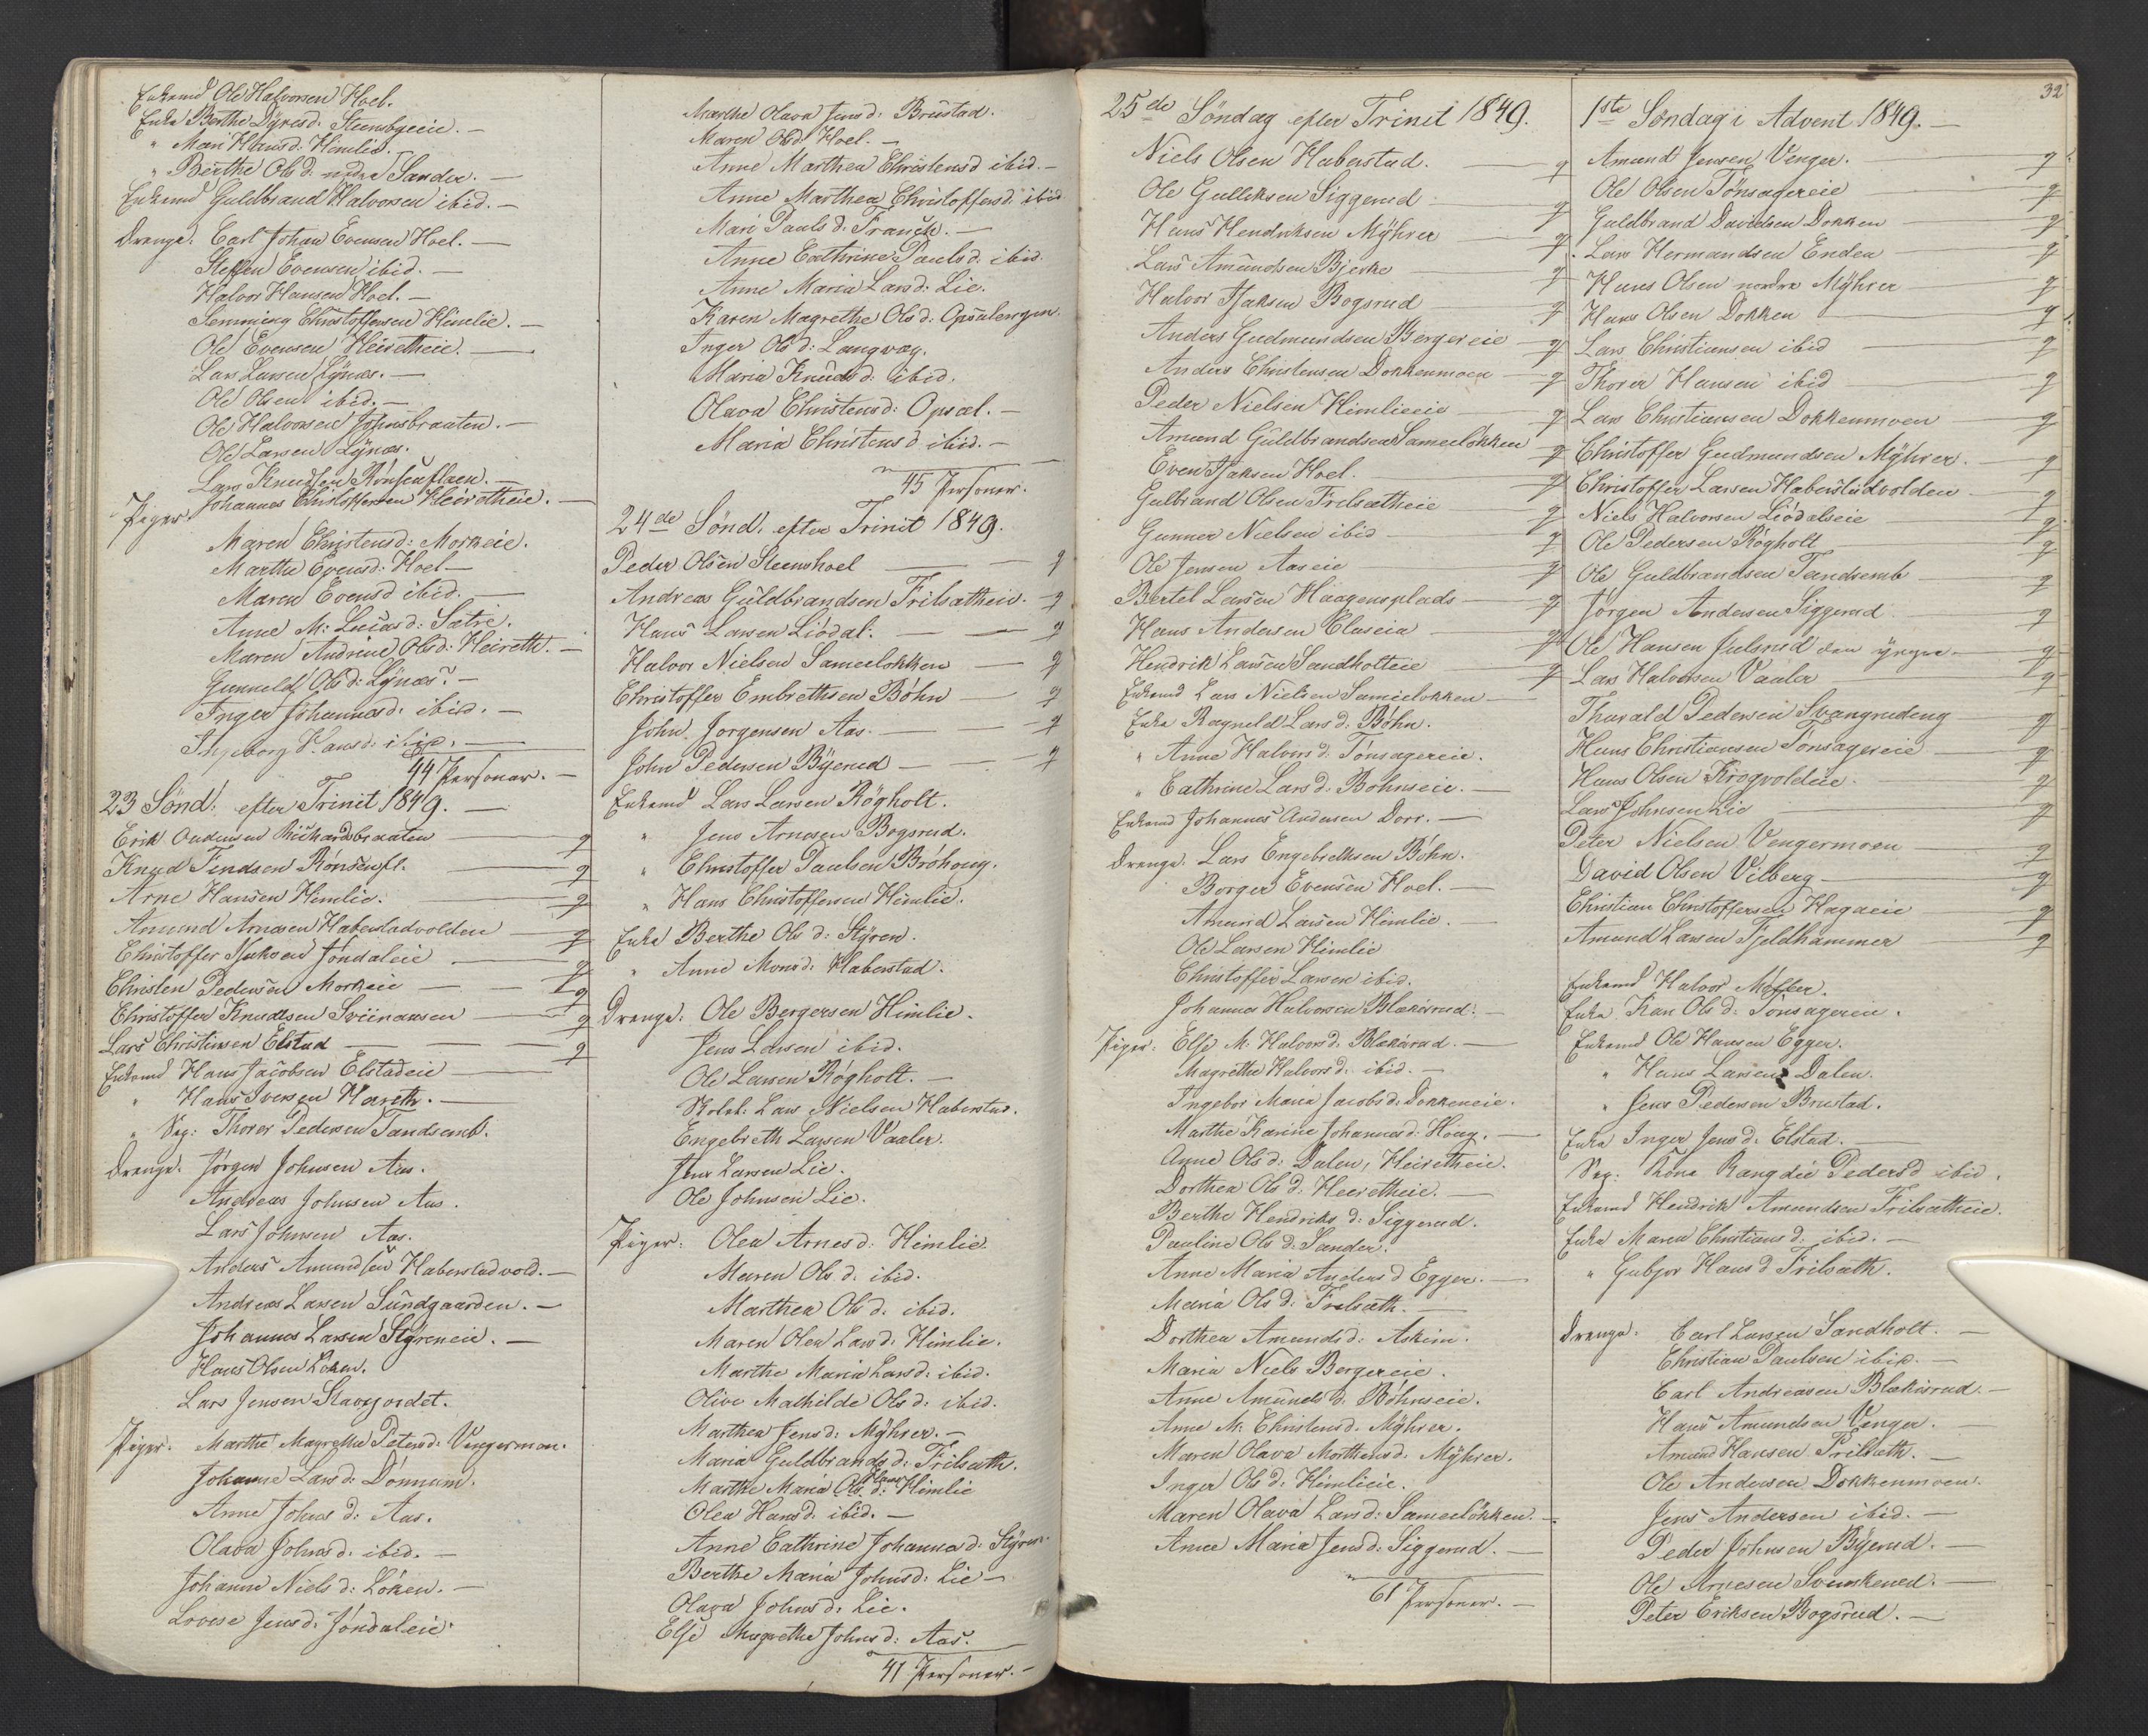 Enkemd Ole Halvorsen Hoel.
Enke Berthe Dyresd: Steensbyeeie. -
" Mari Hansd: Himlie. -
" Berthe Olsd: nedre Sander. -
Enkemd Guldbrand Halvorsen ibid. -
Drenge: Carl Johan Evensen Hoel. -
Steffen Evensen ibid. -
Halvor Hansen Hoel. -
Lemmieng Christoffersen Himlie. -
Ole Evensen Heiretheie. -
Lars Larsen Lynæs. -
Ole Olsen ibid. -
Ole Halvorsen Johnsbraaten. -
Ole Larsen Lynæs.
Lars Knudsen Rönsenflaen. -
Johannes Christoffersen Heiretheie. -
Piger:
Maren Christensd: Morkeie.
Marthe Evensd: Hoel -
Maren Evensd ibid. -
Anne M: Lucasd: Sætre.
Maren Andrine Olsd: Heireth. -
Gunneld Olsd: Lynæs. -
Inger Johannesd: ibid. -
Ingeborg Hansd: ibid. -
44 Personer. -
23 Sönd: efter Trinit 1849. -
Erik Andersen Richardsbraaten - g
Knud Findsen Rönsenfl. - g
Arne Hansen Himlie. - g
Amund Arnesen Haberstadvolden - g
Christoffer Isaksen Jöndaleie - g
Christen Pedersen Morkeie - g
Christoffer Knudsen Sviinaasen - g
Lars Christensen Elstad - g
Enkemd Hans Jacobsen Elstadeie -
" Hans Iversen Hareth. -
" Sep: Thorer Pedersen Tandsemb.
Drenge: Jörgen Johnsen Aas.
Andreas Johnsen Aas.
Lars Johnsen Aas.
Anders Amundsen Haberstadvold. -
Andreas Larsen Sundgaarden. -
Johannes Larsen Styreneie. -
Hans Olsen Löken.
Lars Jensen Stavgjordet.
Piger: Marthe Magrethe Petersd: Vengermoen.
Johanne Larsd: Dönnum.
Anne Johnsd: Aas.
Olava Johnsd: ibid. -
Johanne Nielsd: Löken. -
Lovise Jensd: Jöndaleie.
Marthe Olava Jensd: Brustad.
Maren Olsd: Hoel. -
Anne Marthea Christensd ibid. -
Anne Marthea Christoffersd: ibid
Mari Paulsd: Frauch. -
Anne Cathrine Paulsd: ibid.
Anne Maria Larsd: Lie.
Karen Magrethe Olsd: Opsalengen.
Inger Olsd: Langvæg.
Maria Knudsd: ibid.
Olava Christensd: Opsal. -
Maria Christensd: ibid. -
45 Personer.
24de Sönd: efter Trinit 1849.
Peder Olsen Steenshoel - g
Andreas Guldbrandsen Frilsætheie. - g
Hans Larsen Liödal. - g
Halvor Nielsen Sameelökken - g
Christoffer Embrethsen Böhn - g
John Jorgensen Aas. - g
John Pedersen Byerud - g
Enkemd Lars Larsen Rögholt.
" Jens Arnesen Bogsrud.
" Christoffer Paulsen Bröhoug.
" Hans Christoffersen Himlie.
Enke Berthe Olsd: Styren.
" Anne Monsd: Haberstad.
Drenge: Ole Bergersen Himlie.
Jens Larsen ibid.
Ole Larsen Rögholt. -
Skolel: Lars Nielsen Haberstad.
Engebreth Larsen Vaaler.
Jens Larsen Lie.
Ole Johnsen Lie.
Piger: Olea Arnesd: Himlie.
Maren Olsd: ibid.
Marthea Olsd: ibid.
Maren Olea Larsd: Himlie.
Marthe Maria Larsd: ibid.
Olive Mathilde Olsd: ibid.
Marthea Jensd: Myhrer. -
Maria Guldbrandsd: Frilsæth.
Marthe Maria Olsd: Hans Himlie
Olea Hansd: ibid. -
Anne Cathrine Johannesd: Styren.
Berthe Maria Johnsd: Lie -
Olava Johnsd: Lie.
Else Magrethe Johnsd: Aas.
41 Personer. -
25de Söndag efter Trinit 1849.
Niels Olsen Haberstad. - g
Ole Gulliksen Siggerud - g
Hans Hendriksen Myhrer - g
Lars Amundsen Bjerke - g
Halvor Isaksen Bogsrud - g
Anders Gudmundsen Bergereie - g
Anders Christensen Dokkenmoen - g
Peder Nielsen Himlieeie - g
Amund Guldbrandsen Sameelökken - g
Even Isaksen Hoel. - g
Gulbrand Olsen Frilsætheie - g
Gunner Nielsen ibid - g
Ole Jensen Aaseie - g
Bertel Larsen Haagensplads - g
Hans Andersen Claseie - g
Hendrik Larsen Sandholteie - g
Enkemd Lars Nielsen Sameelökken -
Enke Ragneld Larsd: Böhn.
" Anne Halvorsd: Tönsagereie.
" Cathrine Larsd: Böhnseie. -
Enkemd Johannes Andersen Dorr. -
Drenge: Lars Engebrethsen Böhn.
Borger Evensen Hoel. -
Amund Larsen Himlie. -
Ole Larsen Himlie
Christoffer Larsen ibid.
Johannes Halvorsen Blækisrud. -
Piger: Else M. Halvorsd: Blekisrud. -
Magrethe Halvorsd: ibid. -
Ingebor Maria Jacobsd: Dokkeneie.
Marthe Karine Johannesd: Houg. -
Anne Olsd: Dalen, Heiretheie.
Dorthea Olsd: Heiretheie. -
Berthe Hendriksd: Siggerud.
Pauline Olsd: Sander.
Anne Maria Andersd Egger. -
Maria Olsd: Frilsæth. -
Dorthea Amundsd: Askim.
Maria Niels Bergereie.
Anne Amundsd: Böhnseie.
Anne M: Christensd: Myhrer.
Maren Olava Morthensd: Myhrer.
Inger Olsd: Himlieie.
Maren Olava Larsd: Sameelökken. -
Anne Maria Jensd: Siggerud. -
61 Personer. -
32
1ste Söndag i Advent 1849. -
Amund Jensen Venger. - g
Ole Olsen Tönsagereie - g
Guldbrand Davidsen Dokken - g
Lars Hermandsen Enden - g
Hans Olsen nordre Myhrer - g
Hans Olsen Dokken - g
Lars Christiansen ibid - g
Thorer Hansen ibid - g
Lars Christiansen Dokkenmoen - g
Christoffer Gudmundsen Myhrer. - g
Christoffer Larsen Haberstadvolden - g
Niels Halvorsen Liödalseie - g
Ole Pedersen Rögholt - g
Ole Guldbrandsen Tandsemb - g
Jörgen Andersen Siggerud - g
Ole Hansen Julsrud den yngre - g
Lars Halvorsen Vaaler - g
Thorald Pedersen Svangrudeng - g
Hans Christiansen Tönsagereie - g
Hans Olsen Krogvoldeie. - g
Lars Johnsen Lie - g
Peter Nielsen Vengermoen - g
David Olsen Vilberg - g
Christian Christoffersen Hagaeie - g
Amund Larsen Fjeldhammer - g
Enkemd Halvor Möller.
Enke Kari Olsd: Tönsagereie.
Enkemd Ole Hansen Egger.
" Hans Larsen Dalen.
" Jens Pedersen Brustad.
Enke Inger Jensd: Elstad. -
Sep: Kone Rangdie Pedersd ibid.
Enkemd Hendrik Amundsen Frilsætheie.
Enke Maren Christiansd: ibid. -
" Gubjor Hansd Frilsæth.
Drenge: Carl Larsen Sandholt. -
Christian Paulsen ibid. -
Carl Andreasen Blækisrud. -
Hans Amundsen Venger. -
Amund Hansen Frilsæth. -
Ole Andersen Dokkenmoen.
Jens Andersen ibid. -
Peder Johnsen Byerud. -
Ole Arnesen Svenskerud. -
Peter Eriksen Bogsrud. -